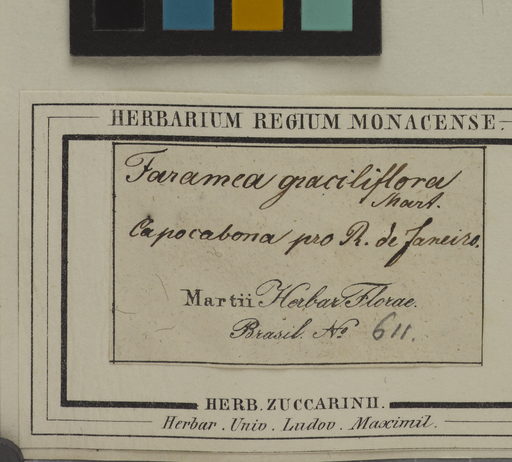 HERBARIUM REGIUM MONACENSE.
Faramea graciliflora
Mart.
Capocabona pro R. de Janeiro.
Martii Herbar. Florae.
Brasil. No 611.
HERB. ZUCCARINII.
Herbar. Univ. Ludov. Maximil.